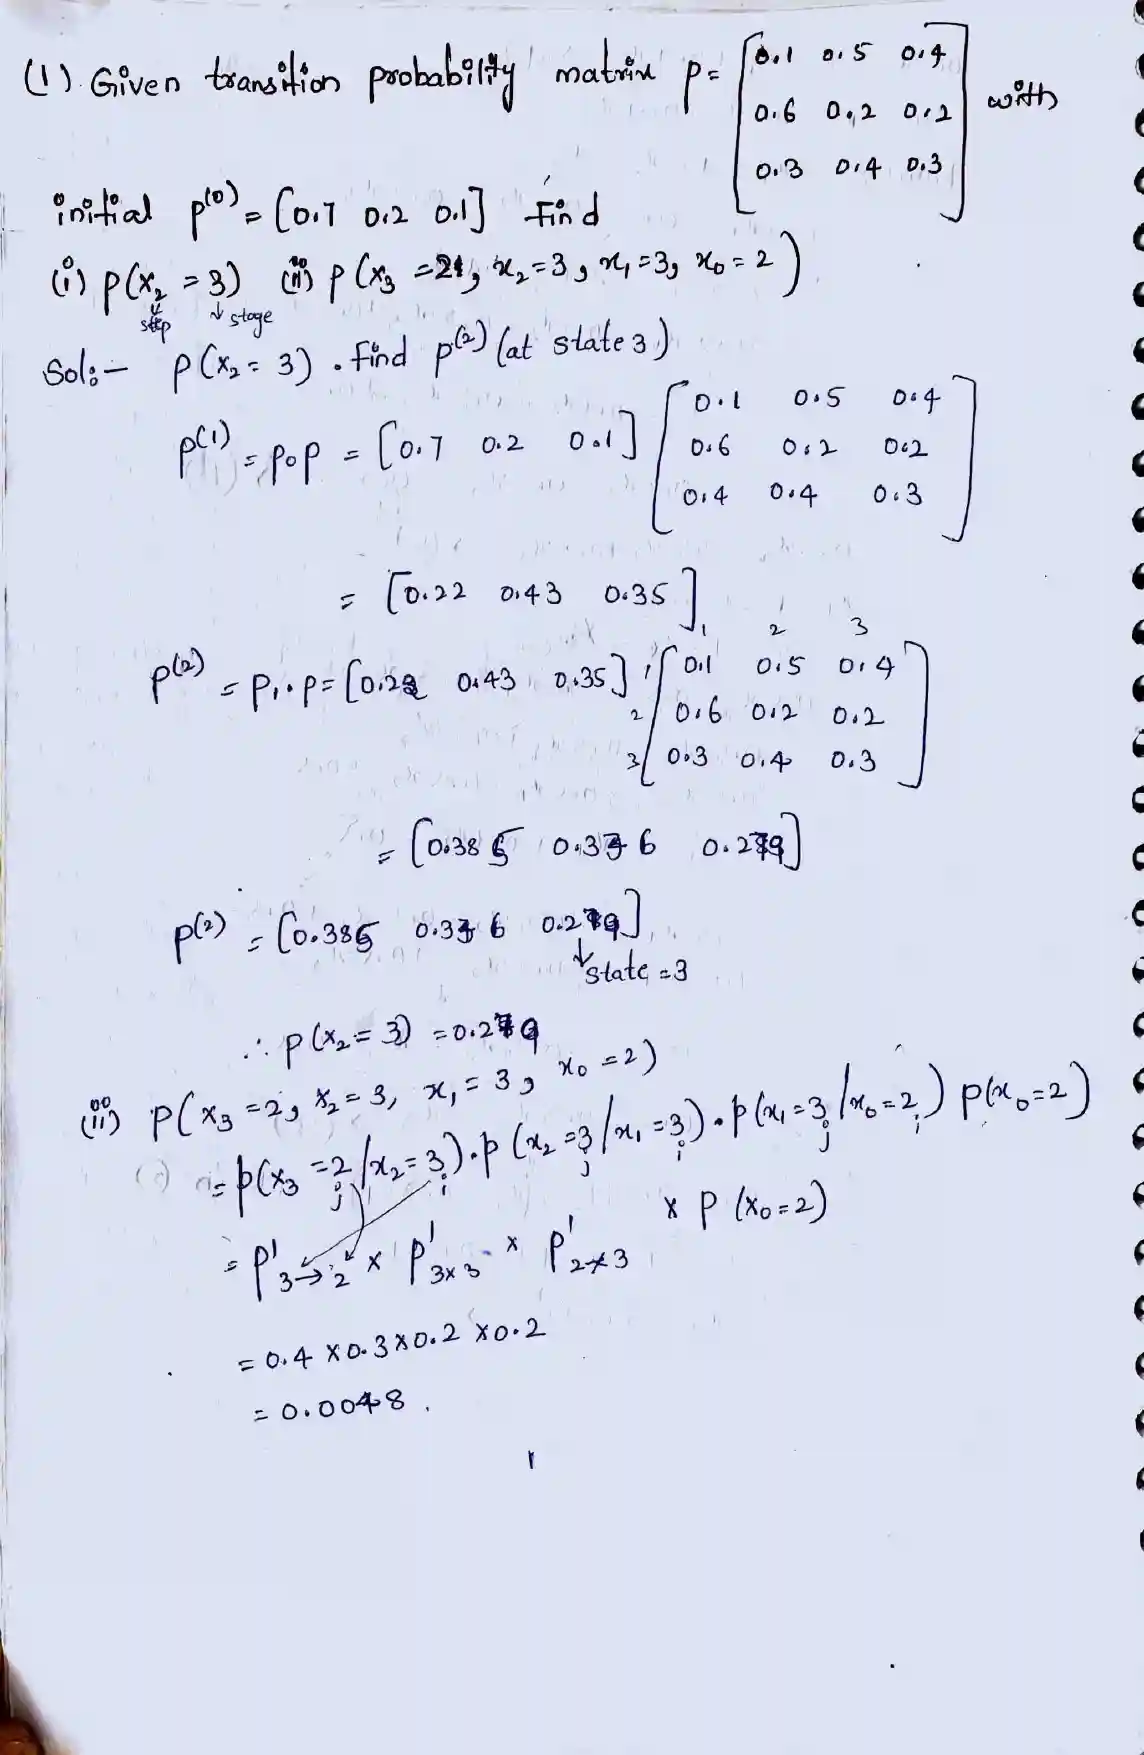 (1). Given transition probability matrix P = [0.1 0.5 0.4
0.6 0.2 0.2
0.3 0.4 0.3] with
initial p(0) = [0.7 0.2 0.1] Find
(i) P(X2 = 3) (ii) P(X3 = 2, x2 = 3, x1 = 3, x0 = 2)
step stage
Sol:- P(X2 = 3). Find p(2) (at state 3)
p(1) = P0P = [0.7 0.2 0.1] [0.1 0.5 0.4
0.6 0.2 0.2
0.4 0.4 0.3]
= [0.22 0.43 0.35]
1 2 3
p(2) = P1.P = [0.22 0.43 0.35] 1 [0.1 0.5 0.4
2 0.6 0.2 0.2
3 0.3 0.4 0.3]
= [0.385 0.336 0.279]
p(2) = [0.385 0.336 0.279]
↓ state = 3
∴ P(X2 = 3) = 0.279
(ii) P(X3 = 2, X2 = 3, x1 = 3, x0 = 2)
= P(X3 = 2/x2 = 3).P(x2 = 3/x1 = 3).P(x1 = 3/x0 = 2) P(x0 = 2)
j i j i j i
x P(X0 = 2)
= P' 3→2 x P' 3x3 x P' 2x3
= 0.4 x 0.3 x 0.2 x 0.2
= 0.0048.